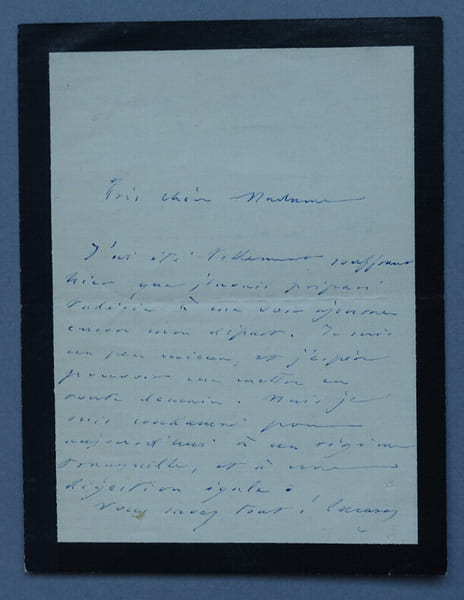 Très chère Madame
J'ai été tellement souffrant
hier, que j'avais préparé
Valérie à me voir ajourner
encore mon départ. Je suis
un peu mieux, et j'espère
pouvoir me mettre en
route demain. Mais je
suis condamné pour
aujourd'hui à un régime
tranquille, et à une
digestion égale.
Vous savez tout !